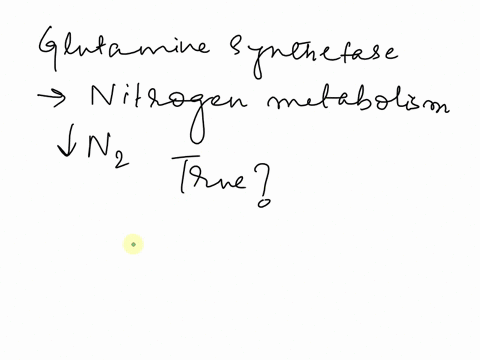 Glutamine synthetase
→ Nitrogen metabolism
↓ N₂
True?